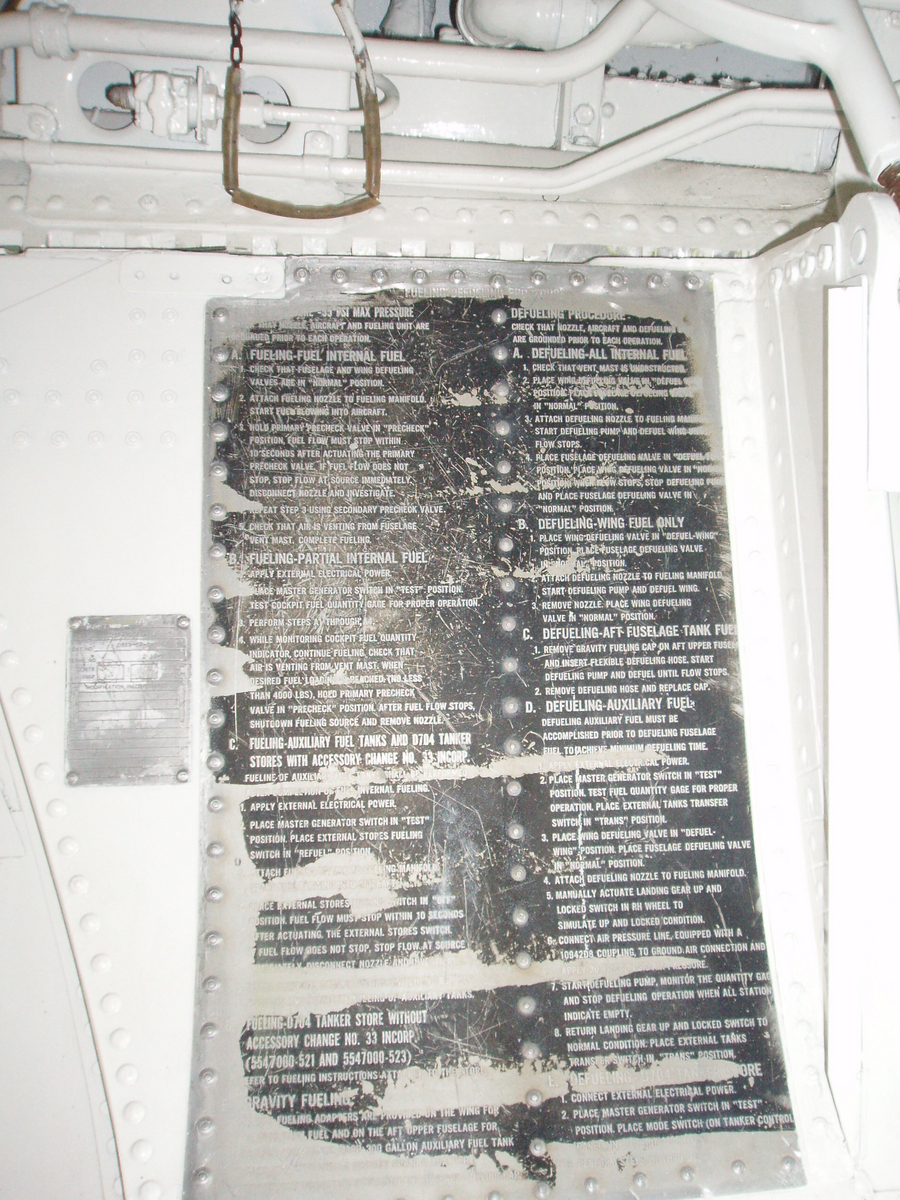 PSI MAX PRESSURE
NOZZLE, AIRCRAFT AND FUELING UNIT ARE
PRIOR TO EACH OPERATION.
A. FUELING-FUEL INTERNAL FUEL
CHECK THAT FUSELAGE AND WING DEFUELING
VALVES ARE IN "NORMAL" POSITION.
2. ATTACH FUELING NOZZLE TO FUELING MANIFOLD.
START FUEL FLOWING INTO AIRCRAFT.
3. HOLD PRIMARY PRECHECK VALVE IN "PRECHECK"
POSITION, FUEL FLOW MUST STOP WITHIN
10 SECONDS AFTER ACTUATING THE PRIMARY
PRECHECK VALVE. IF FUEL FLOW DOES NOT
STOP, STOP FLOW AT SOURCE IMMEDIATELY,
DISCONNECT NOZZLE AND INVESTIGATE.
REPEAT STEP 3 USING SECONDARY PRECHECK VALVE.
5. CHECK THAT AIR IS VENTING FROM FUSELAGE
VENT MAST. COMPLETE FUELING.
B. FUELING-PARTIAL INTERNAL FUEL
APPLY EXTERNAL ELECTRICAL POWER.
PLACE MASTER GENERATOR SWITCH IN "TEST" POSITION.
TEST COCKPIT FUEL QUANTITY GAGE FOR PROPER OPERATION.
3. PERFORM STEPS A THROUGH
4. WHILE MONITORING COCKPIT FUEL QUANTITY
INDICATOR, CONTINUE FUELING, CHECK THAT
AIR IS VENTING FROM VENT MAST. WHEN
DESIRED FUEL LOADING IS REACHED (NO LESS
THAN 4000 LBS), HOLD PRIMARY PRECHECK
VALVE IN "PRECHECK" POSITION. AFTER FUEL FLOW STOPS,
SHUTDOWN FUELING SOURCE AND REMOVE NOZZLE.
C. FUELING-AUXILIARY FUEL TANKS AND D704 TANKER
STORES WITH ACCESSORY CHANGE NO. 33 INCORP.
FUELING OF
INTERNAL FUELING.
1. APPLY EXTERNAL ELECTRICAL POWER.
2. PLACE MASTER GENERATOR SWITCH IN "TEST"
POSITION. PLACE EXTERNAL STORES FUELING
SWITCH IN "REFUEL" POSITION.
MANIFOLD
EXTERNAL STORES SWITCH IN
POSITION. FUEL FLOW MUST STOP WITHIN 10 SECONDS
AFTER ACTUATING. THE EXTERNAL STORES SWITCH.
FUEL FLOW DOES NOT STOP, STOP FLOW AT SOURCE
DISCONNECT NOZZLE AND
OF AUXILIARY TANKS.
FUELING-D704 TANKER STORE WITHOUT
ACCESSORY CHANGE NO. 33 INCORP
(5547000-521 AND 5547000-523)
REFER TO FUELING INSTRUCTIONS
GRAVITY FUELING
FUELING ADAPTERS ARE PROVIDED ON THE WING FOR
FUEL AND ON THE AFT UPPER FUSELAGE FOR
300 GALLON AUXILIARY FUEL TANK
DEFUELING PROCEDURE
CHECK THAT NOZZLE, AIRCRAFT AND DEFUELING
ARE GROUNDED PRIOR TO EACH OPERATION.
A. DEFUELING-ALL INTERNAL FUEL
1. CHECK THAT VENT MAST IS UNOBSTRUCTED.
2. PLACE WING DEFUELING VALVE IN "DEFUEL
POSITION. PLACE FUSELAGE DEFUELING
IN "NORMAL" POSITION.
3. ATTACH DEFUELING NOZZLE TO FUELING
START DEFUELING PUMP AND DEFUEL WING
FLOW STOPS.
4. PLACE FUSELAGE DEFUELING VALVE IN
POSITION. PLACE WING DEFUELING VALVE IN
POSITION. WHEN FLOW STOPS, STOP DEFUELING
AND PLACE FUSELAGE DEFUELING VALVE IN
"NORMAL" POSITION.
B. DEFUELING-WING FUEL ONLY
1. PLACE WING DEFUELING VALVE IN "DEFUEL-WING"
POSITION. PLACE FUSELAGE DEFUELING VALVE
IN "NORMAL" POSITION.
2. ATTACH DEFUELING NOZZLE TO FUELING MANIFOLD
START DEFUELING PUMP AND DEFUEL WING.
3. REMOVE NOZZLE. PLACE WING DEFUELING
VALVE IN "NORMAL" POSITION.
C. DEFUELING-AFT FUSELAGE TANK
1. REMOVE GRAVITY FUELING CAP ON AFT UPPER
AND INSERT FLEXIBLE DEFUELING HOSE. START
DEFUELING PUMP AND DEFUEL UNTIL FLOW STOPS.
2. REMOVE DEFUELING HOSE AND REPLACE CAP.
D. DEFUELING-AUXILIARY FUEL
DEFUELING AUXILIARY FUEL MUST BE
ACCOMPLISHED PRIOR TO DEFUELING FUSELAGE
FUEL TO ACHIEVE MINIMUM DEFUELING TIME.
APPLY EXTERNAL ELECTRICAL POWER.
2. PLACE MASTER GENERATOR SWITCH IN "TEST"
POSITION. TEST FUEL QUANTITY GAGE FOR PROPER
OPERATION. PLACE EXTERNAL TANKS TRANSFER
SWITCH IN "TRANS" POSITION.
3. PLACE WING DEFUELING VALVE IN "DEFUEL-
WING" POSITION. PLACE FUSELAGE DEFUELING VALVE
IN "NORMAL" POSITION.
4. ATTACH DEFUELING NOZZLE TO FUELING MANIFOLD.
5. MANUALLY ACTUATE LANDING GEAR UP AND
LOCKED SWITCH IN RH WHEEL TO
SIMULATE UP AND LOCKED CONDITION.
6. CONNECT AIR PRESSURE LINE, EQUIPPED WITH A
COUPLING, TO GROUND AIR CONNECTION AND
PRESSURE.
7. START DEFUELING PUMP, MONITOR THE QUANTITY
AND STOP DEFUELING OPERATION WHEN ALL
INDICATE EMPTY.
8. RETURN LANDING GEAR UP AND LOCKED SWITCH TO
NORMAL CONDITION. PLACE EXTERNAL TANKS
TRANSFER SWITCH IN "TRANS" POSITION.
E. DEFUELING
1. CONNECT EXTERNAL ELECTRICAL POWER.
2. PLACE MASTER GENERATOR SWITCH IN "TEST"
POSITION. PLACE MODE SWITCH (ON TANKER CONTROL